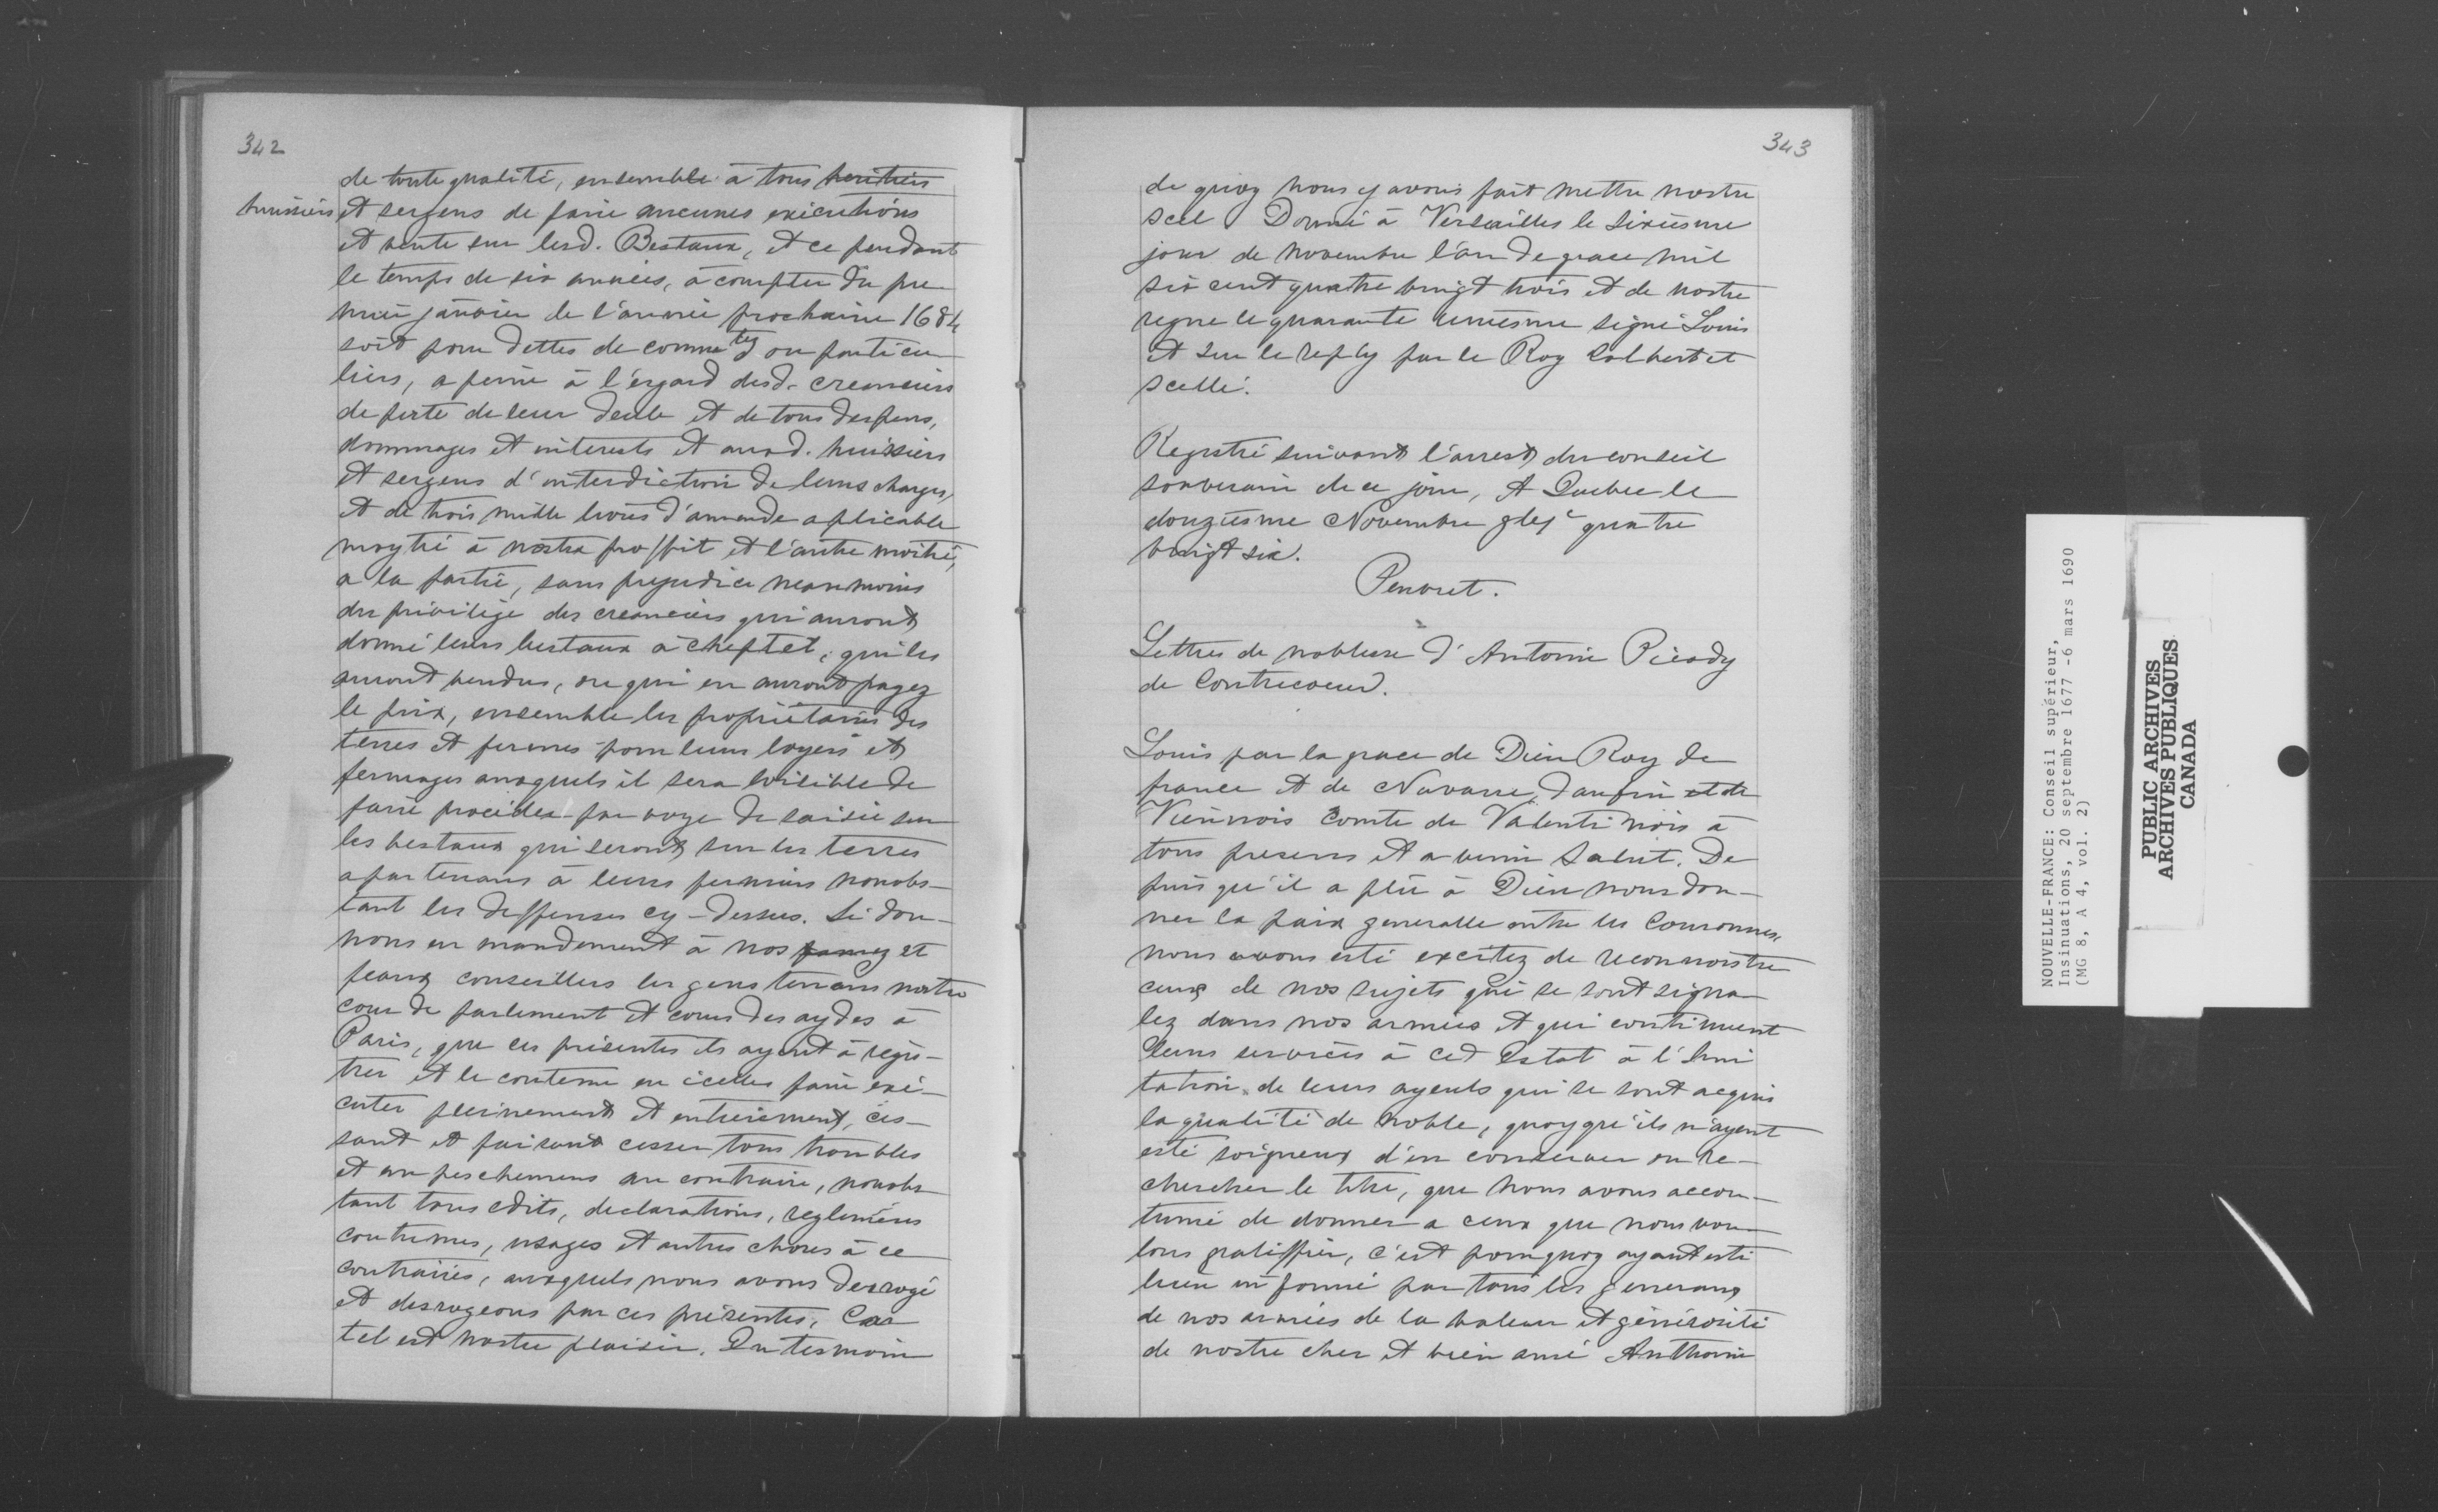 342
de toute qualité, ensemble à tous heritiers
huissiers et sergens de faire aucunes exécutions
et vente sur lesd. Bestaux, et ce pendant
le temps de six années, à compter du pre
mier janvier de l'année prochaine 1684
soit pour dettes de comm.tez ou particu
liers, a peine à l'egard desd. creanciers
de perte de leur deub et de tous despens,
dommages et interests et ausd. huissiers
et sergens d'interdiction de leurs charges,
et de trois mille livres d'amende aplicable
moytié à nostre proffit et l'autre moitié,
a la partie, sans prejudice neanmoins
du privilège des creanciers qui auront
donné leurs bestaux à cheptel, qui les
auront vendus, ou qui en auront payez
le prix, ensemble les propriétaires des
terres et fermes pour leurs loyers et
fermages ausquels il sera loisible de
faire procéder par voye de saisie sur
les bestaux qui seront sur les terres
apartenans à leurs fermiers nonobs-
tant les deffenses cy-dessus. Si don-
nons en mandement à nos amez et
feaux conseillers les gens tenans nostre
cour de parlement et cours des aydes à
Paris, que ces présentes ils ayent à regis-
trer et le contenu en icelles faire exé-
cuter pleinement et entierement, ces-
sant et faisant cesser tous troubles
et anpeschemens au contraire, nonobs
tant tous edits, declarations, reglemens
coutumes, usages et autres choses à ce
contraires, ausquels nous avons desrogé
et desrogeons par ces présentes, Car
tel est nostre plaisir. En tesmoin
343
de quoy nous y avons fait mettre nostre
scel Donné à Versailles le sixiesme
jour de novembre l'an de grace mil
six cent quatre vingt trois et de nostre
regne le quarante uniesme signé Louis
et sur le reply par le Roy Colbert et
scellé.
Registré suivant l'arrest du conseil
souverain de ce jour, A Quebec le
douziesme Novembre quatre
vingt six.
Penvret.
Lettres de noblesse d'Antoine Pécody
de Contrecoeur.
Louis par la grace de Dieu Roy de
france et de Navarre, daufin et de
Viennois Comte de Valentinois à
tous presens et a venir Salut. De
puis qu'il a plû à Dieu nous don-
ner la paix generalle entre les Couronnes,
nous avons esté excitez de reconnoistre
ceux de nos sujets qui se sont signa
lez dans nos armées et qui continuent
leurs services à cet Estat à l'Imi
tation de leurs ayeuls qui se sont acquis
la qualité de noble, quoyqu'ils n'ayent
esté soigneux d'en conserver ou re-
chercher le titre, que nous avons accou-
tumé de donner a ceux que nous vou-
lons gratiffier, c'est pourquoy ayant esté
bien informé par tous les generaux
de nos armées de la valeur et générosité
de nostre cher et bien amé Anthoine
NOUVELLE-FRANCE: Conseil supérieur,
Insinuations, 20 septembre 1677 -6 mars 1690
(MG 8, A 4, vol. 2)
PUBLIC ARCHIVES
ARCHIVES PUBLIQUES
CANADA